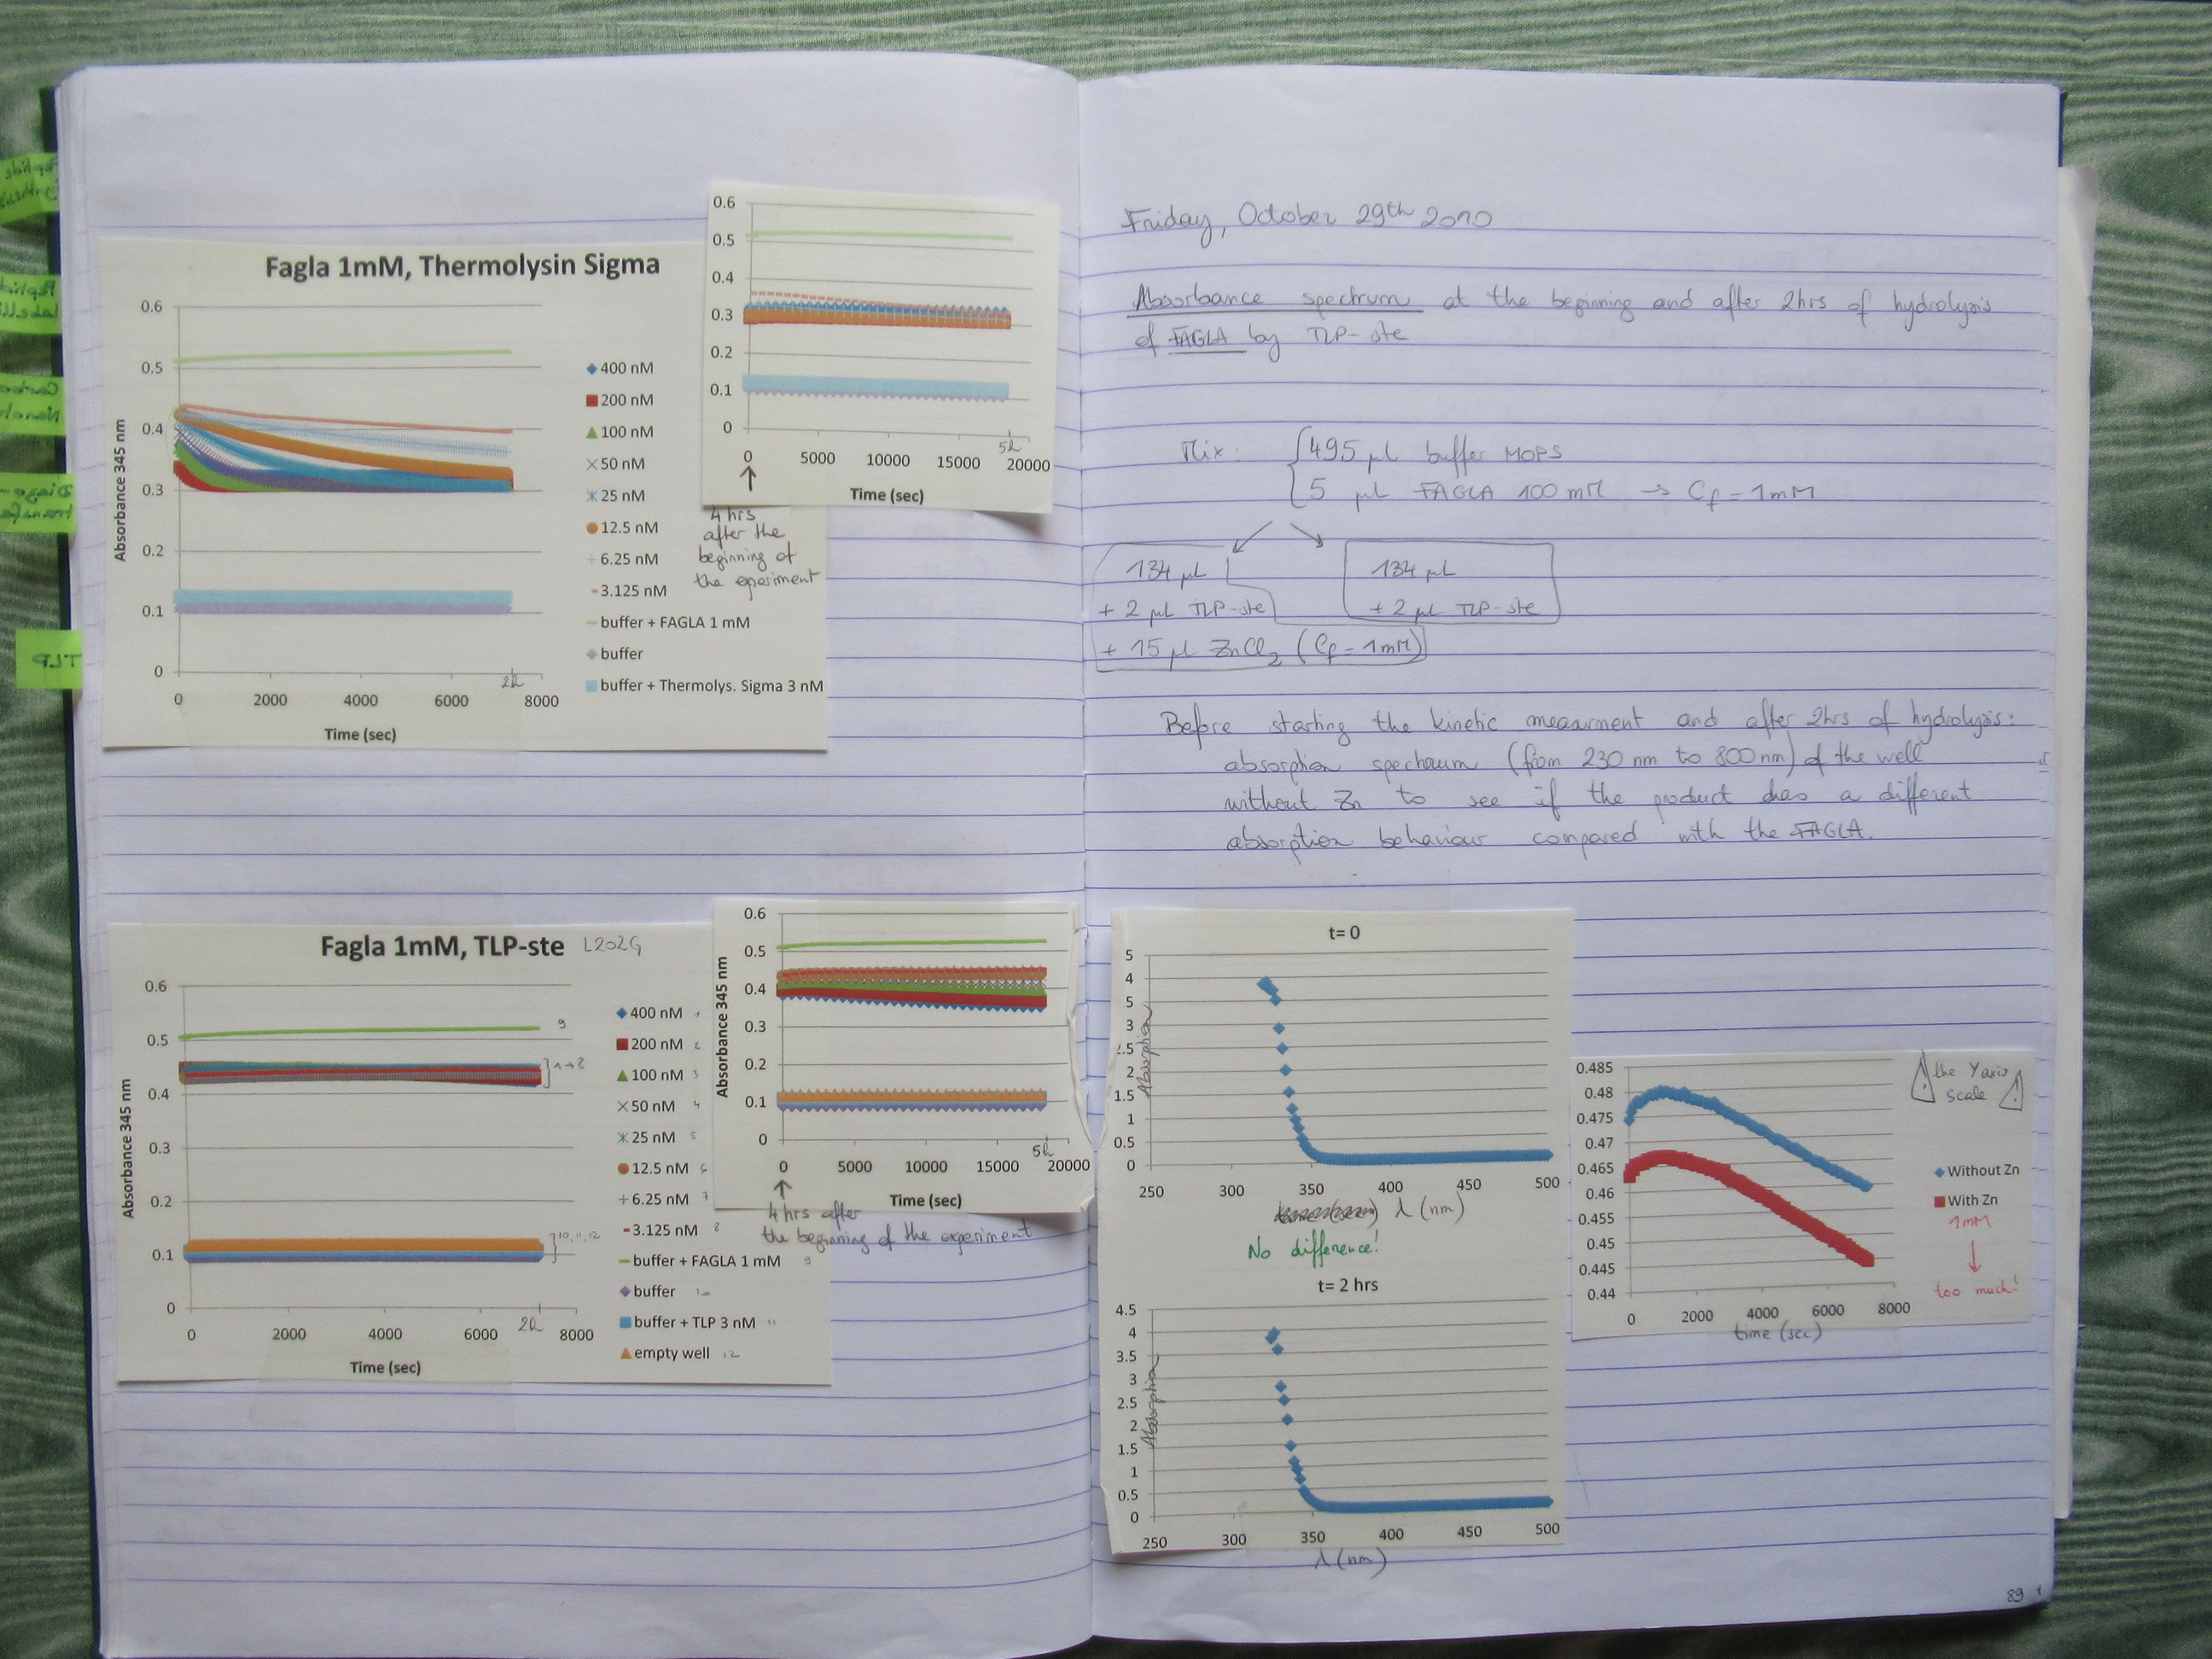 Fagla 1mM, Thermolysin Sigma
Absorbance 345 nm
0.6
0.5
0.4
0.3
0.2
0.1
0
0 2000 4000 6000 8000
2h
Time (sec)
400 nM
200 nM
100 nM
50 nM
25 nM
12.5 nM
6.25 nM
3.125 nM
buffer + FAGLA 1 mM
buffer
buffer + Thermolys. Sigma 3 nM
0.6
0.5
0.4
0.3
0.2
0.1
0
0 5000 10000 15000 20000
5h
Time (sec)
4 hrs
after the
beginning of
the eperiment
Fagla 1mM, TLP-ste L202G
Absorbance 345 nm
0.6
0.5
0.4
0.3
0.2
0.1
0
9
1→8
10, 11, 12
0 2000 4000 6000 8000
2h
Time (sec)
400 nM 1
200 nM 2
100 nM 3
50 nM 4
25 nM 5
12.5 nM 6
6.25 nM 7
3.125 nM 8
buffer + FAGLA 1 mM 9
buffer 10
buffer + TLP 3 nM 11
empty well 12
Absorbance 345 nm
0.6
0.5
0.4
0.3
0.2
0.1
0
0 5000 10000 15000 20000
5h
Time (sec)
4 hrs after
the beginning of the experiment
TLP
Friday, October 29th 2010
Absorbance spectrum at the beginning and after 2hrs of hydrolysis
of FAGLA by TLP-ste
Mix: 495 µL buffer MOPS
5 µL FAGLA 100 mM → Cf = 1mM
134 µL
+ 2 µL TLP-ste
+ 15 µL ZnCl2 (Cf = 1mM)
134 µL
+ 2 µL TLP-ste
Before starting the kinetic measurment and after 2hrs of hydrolysis:
absorption spectrum (from 230 nm to 800 nm) of the well
without Zn to see if the product has a different
absorption behaviour compared with the FAGLA.
t= 0
Absorption
5
4
5
3
2.5
2
1.5
1
0.5
0
250 300 350 400 450 500
λ (nm)
No difference!
t= 2 hrs
Absorption
4.5
4
3.5
3
2.5
2
1.5
1
0.5
0
250 300 350 400 450 500
λ (nm)
0.485
0.48
0.475
0.47
0.465
0.46
0.455
0.45
0.445
0.44
0 2000 4000 6000 8000
time (sec)
! the Y axis
scale !
Without Zn
With Zn
1mM
↓
too much!
89